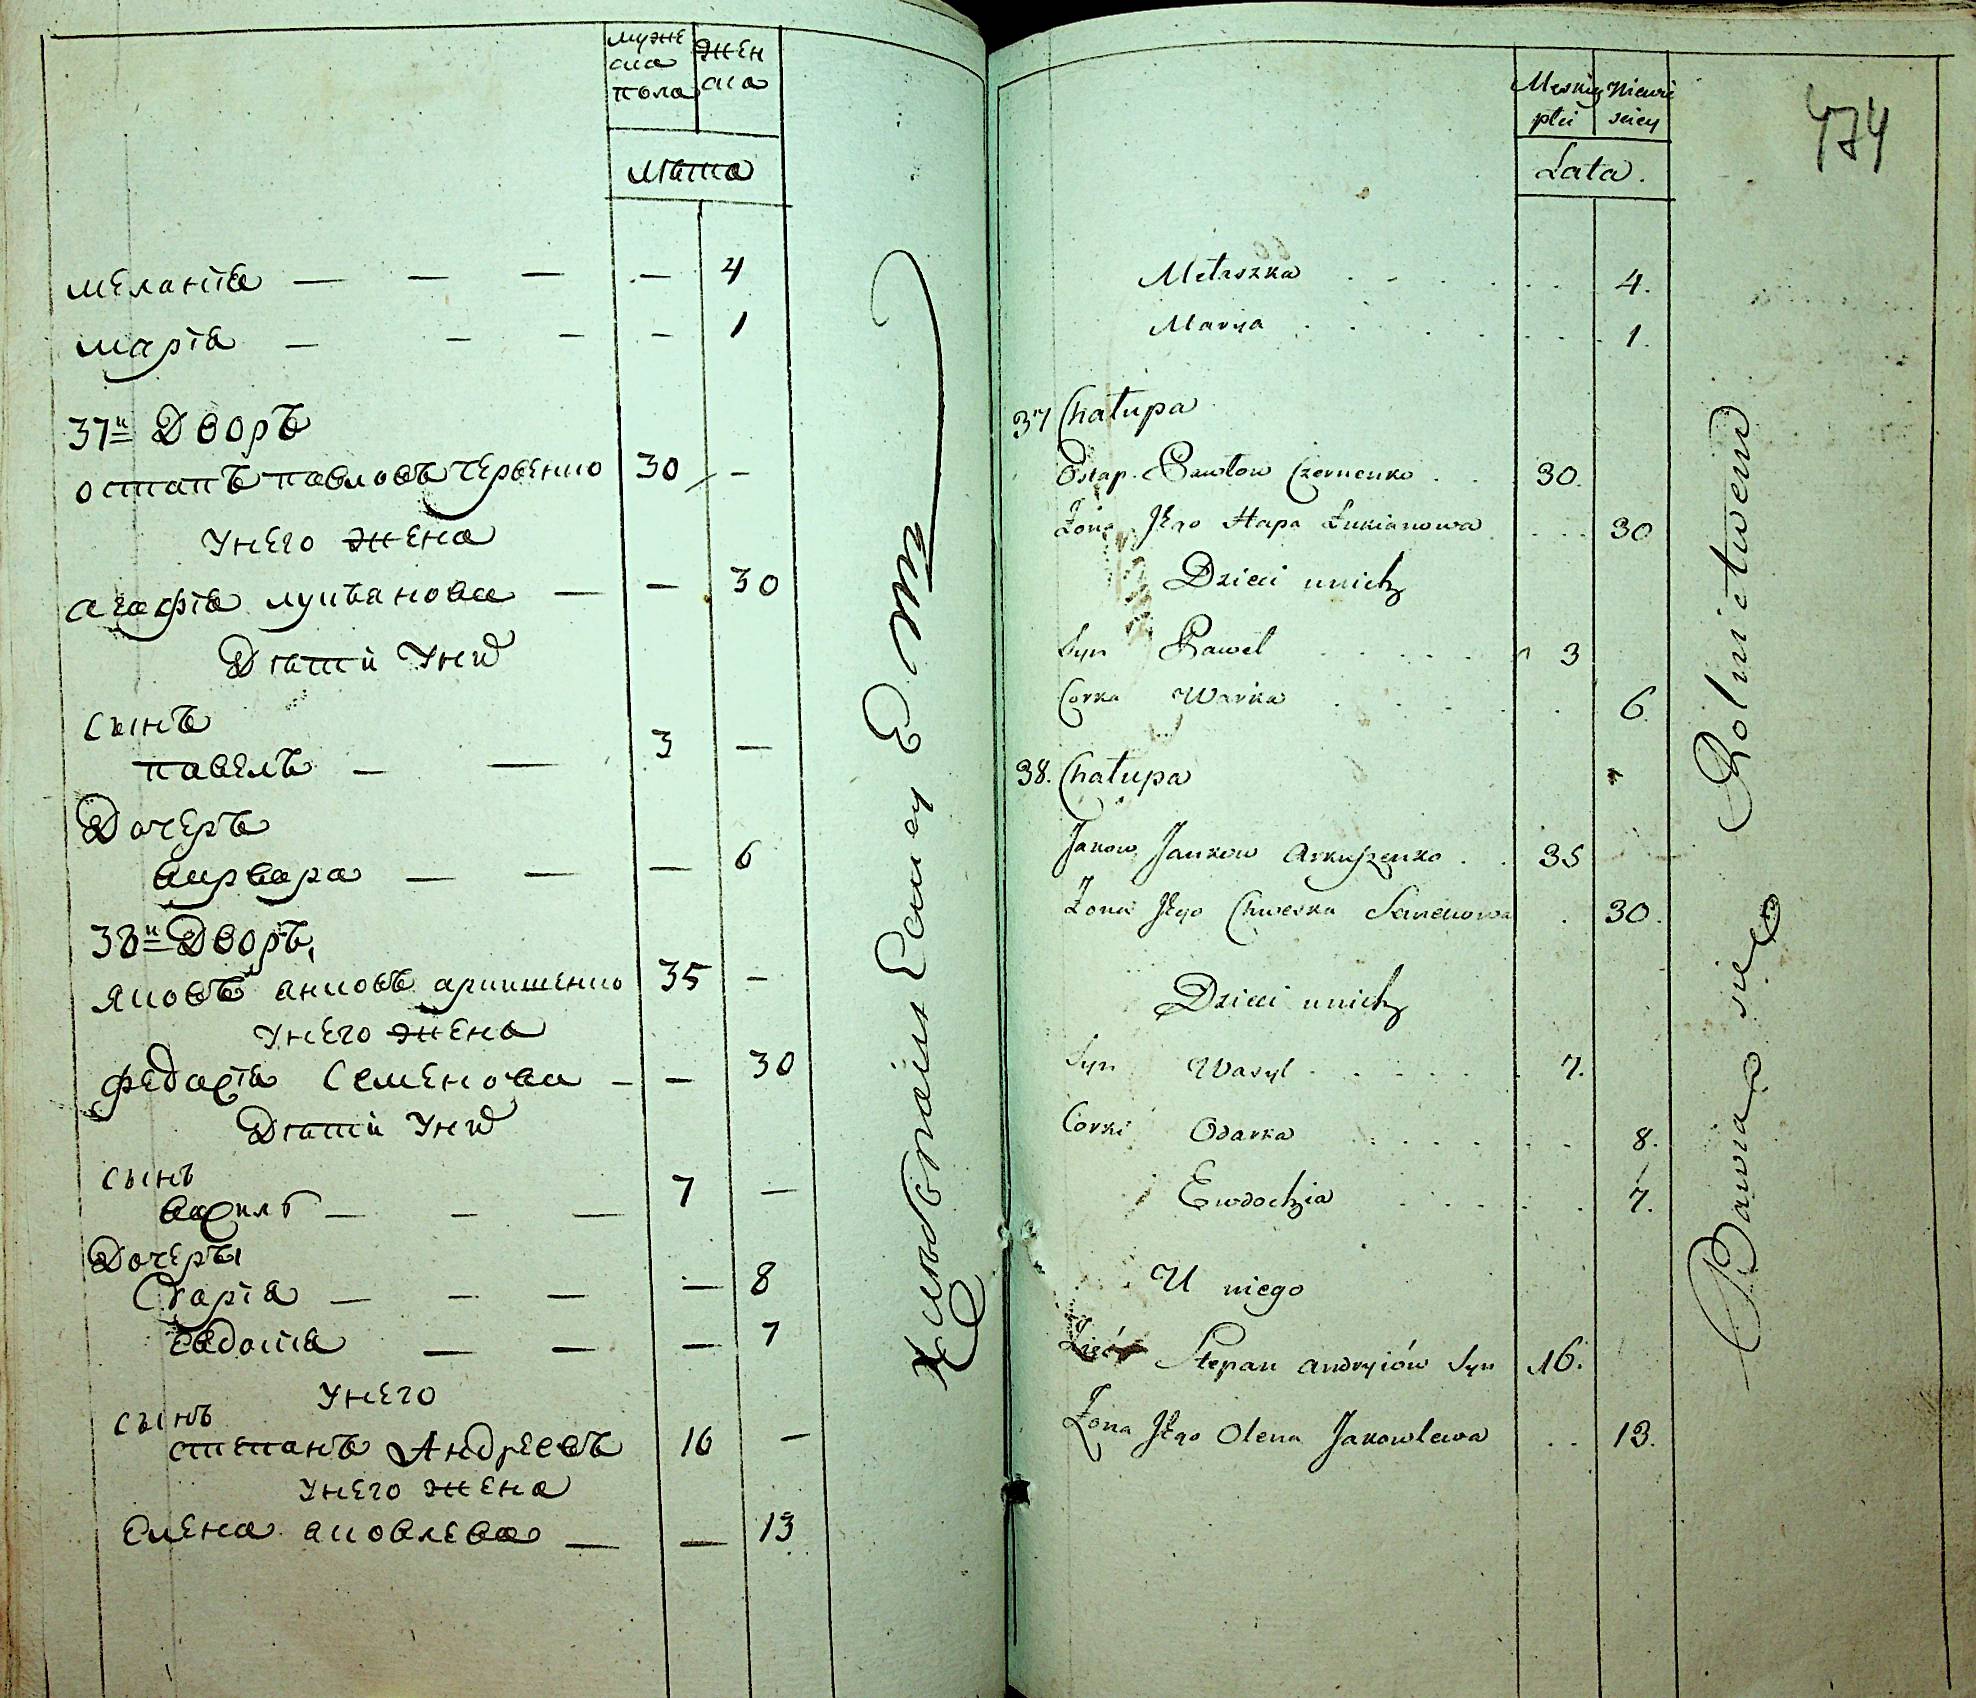 муже
ска
пола
жен
ска
лѣта
меланія — — — — 4
марія — — — — 1
37й Дворъ
остапъ павловъ черненко 30 —
унего жена
агафія лукіанова — — 30
Дѣти уних
сынъ
павелъ — — 3 —
Дочеръ
варвара — — — 6
38й Дворъ
яковъ яковъ аркушенко 35 —
унего жена
федосія Семенова — — 30
Дѣти уних
сынъ
василь — — — 7 —
Дочеры
Дарія — — — — 8
евдокія — — — 7
унего
сынъ
степанъ Андреевъ 16 —
унего жена
Елена яковлева — — 13
Хлебопашествует
474
Męskiey
płci
Niewie
sciey
Lata.
Melaszka 4.
Marya 1.
37 Chałupa
Ostap Pawłow Czernenko 30.
Żona Jego Hapa Łukianowa 30
Dzieci unich
Syn Paweł 3
Corka Warka 6.
38. Chałupa
Jakow Jankow Arkuszenko 35
Żona Jego Chweska Semenowa 30.
Dzieci unich
Syn Wasyl 7.
Corki Odarka 8.
Ewdochia 7.
U niego
Zięć Stepan Andryiów Syn 16.
Żona Jego Olena Jakowlewa 13.
Bawią się Rolnictwem